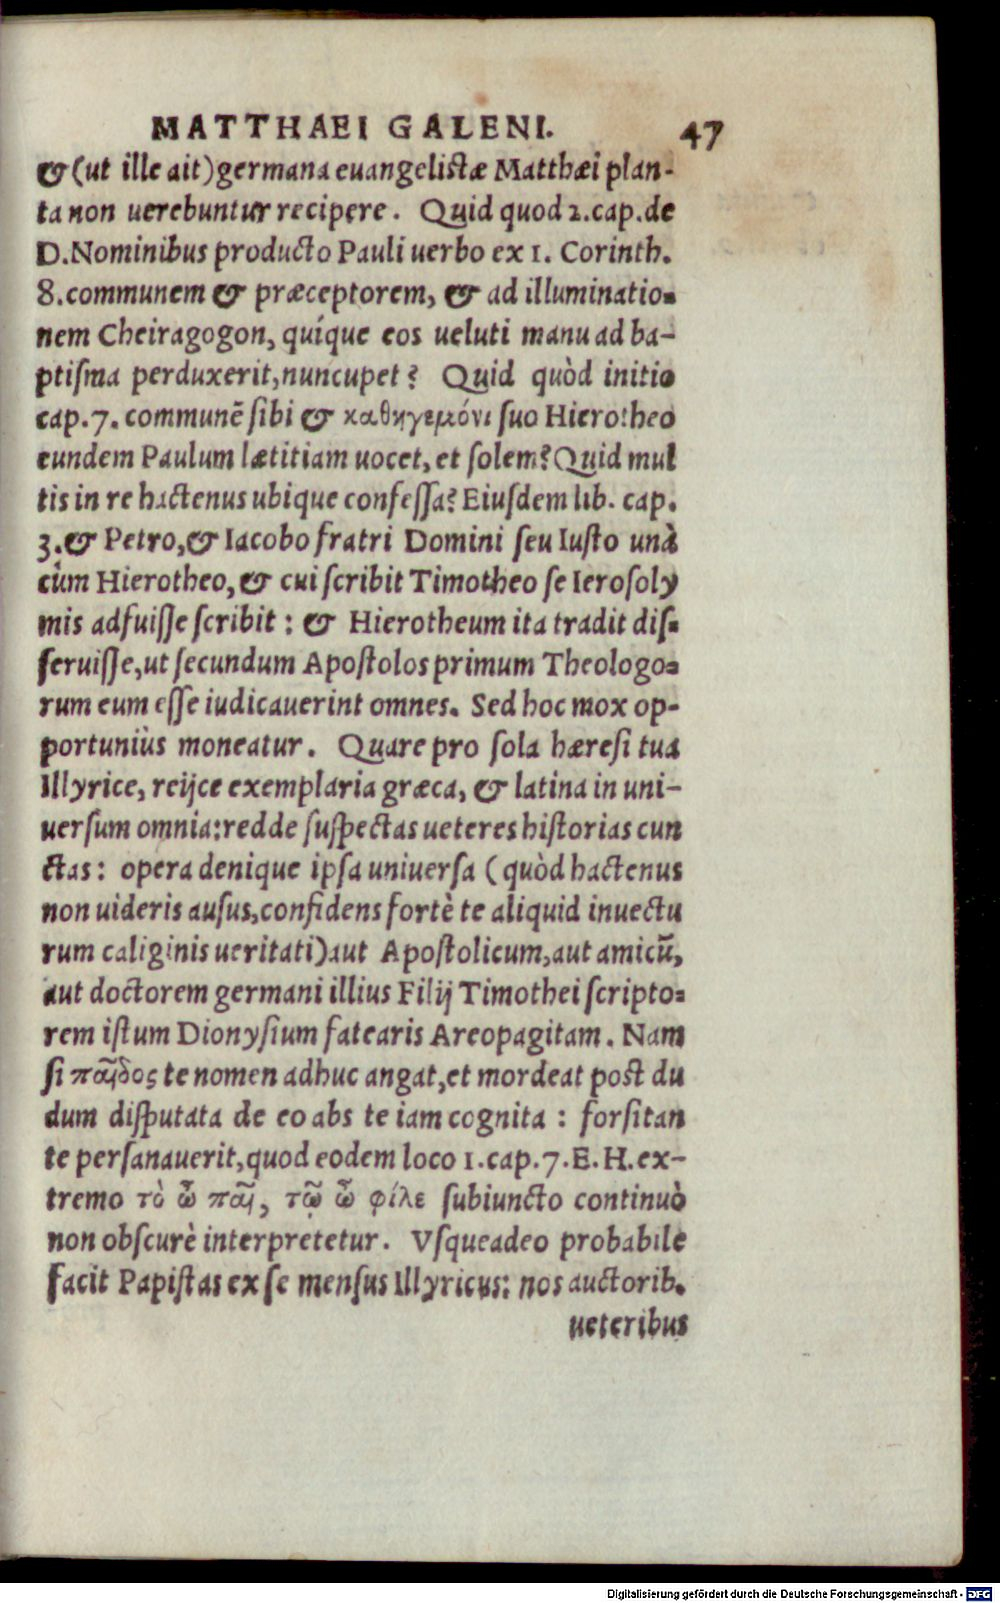 MATTHAEI GALENI. 47
& (ut ille ait) germana euangelistæ Matthæi plan-
ta non uerebuntur recipere. Quid quod 2. cap. de
D. Nominibus producto Pauli uerbo ex 1. Corinth.
8. communem & præceptorem, & ad illuminatio-
nem Cheiragogon, quíque eos ueluti manu ad ba-
ptiſma perduxerit, nuncupet? Quid quòd initio
cap. 7. communẽ ſibi & καθηγεμόνι ſuo Hierotheo
eundem Paulum lætitiam uocet, et ſolem? Quid mul
tis in re hactenus ubique confeſſa? Eiuſdem lib. cap.
3. & Petro, & Iacobo fratri Domini ſeu Iuſto unà
cùm Hierotheo, & cui ſcribit Timotheo ſe Ieroſoly
mis adfuiſſe ſcribit: & Hierotheum ita tradit diſ-
ſeruiſſe, ut ſecundum Apoſtolos primum Theologo-
rum eum eſſe iudicauerint omnes. Sed hoc mox op-
portuniùs moneatur. Quare pro ſola hæreſi tua
Illyrice, reijce exemplaria græca, & latina in uni-
uerſum omnia: redde ſuſpectas ueteres hiſtorias cun
ctas: opera denique ipſa uniuerſa (quòd hactenus
non uideris auſus, confidens fortè te aliquid inuectu
rum caliginis ueritati) aut Apoſtolicum, aut amicũ,
aut doctorem germani illius Filij Timothei ſcripto-
rem iſtum Dionyſium fatearis Areopagitam. Nam
ſi παῖδος te nomen adhuc angat, et mordeat poſt du
dum diſputata de eo abs te iam cognita: forſitan
te perſanauerit, quod eodem loco 1. cap. 7. E. H. ex-
tremo τὸ ὦ παῖ, τῷ ὦ φίλε ſubiuncto continuò
non obſcurè interpretetur. Vſqueadeo probabile
facit Papiſtas ex ſe menſus Illyricus: nos auctorib.
ueteribus
Digitalisierung gefördert durch die Deutsche Forschungsgemeinschaft - DFG